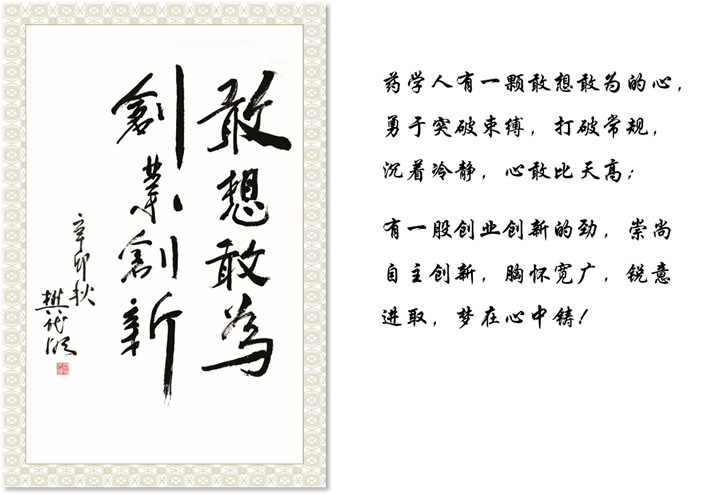 敢想敢為
創業創新
辛卯秋
樊代明
药学人有一颗敢想敢为的心，
勇于突破束缚，打破常规，
沉着冷静，心敢比天高；
有一股创业创新的劲，崇尚
自主创新，胸怀宽广，锐意
进取，梦在心中铸！